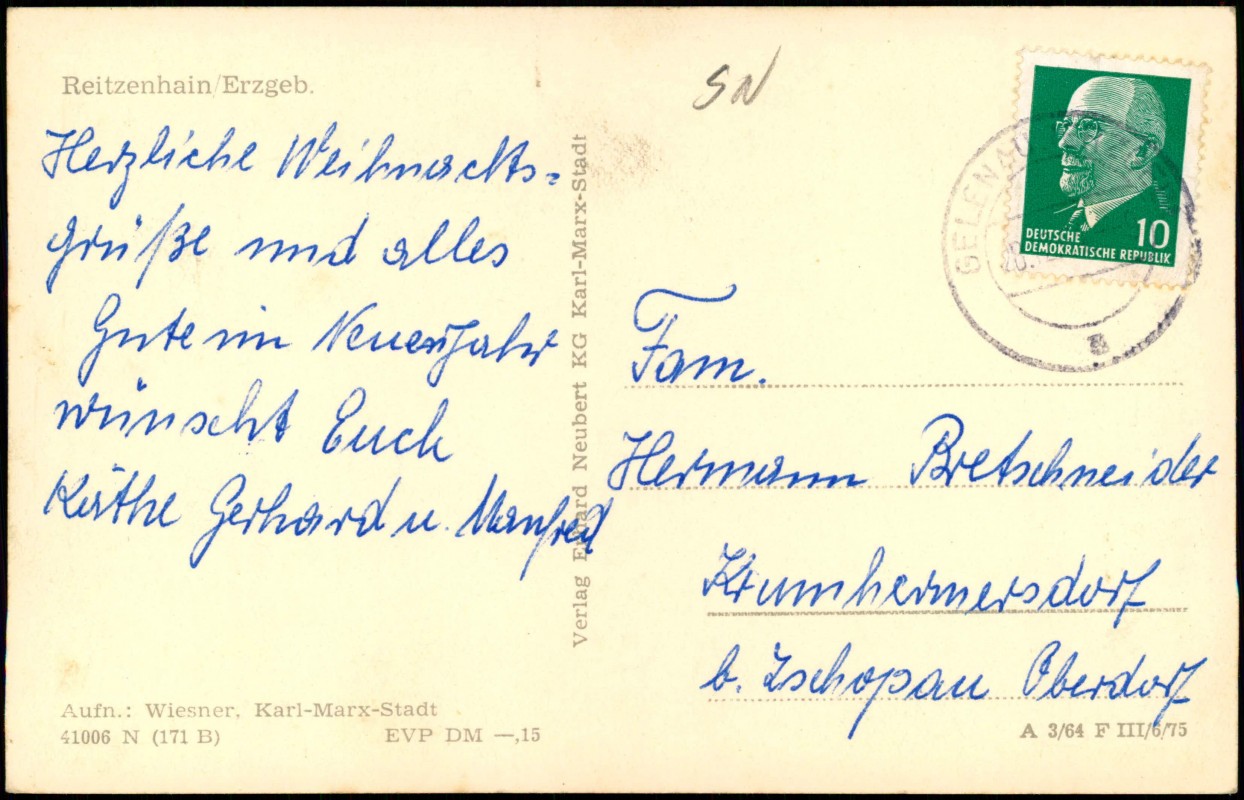 Reitzenhain/Erzgeb.
Herzliche Weihnachts-
grüße und alles
Gute im Neuen Jahr
wünscht Euch
Käthe Gerhard u. Manfred
Aufn.: Wiesner, Karl-Marx-Stadt
41006 N (171 B)
EVP DM —,15
Verlag Erhard Neubert KG Karl-Marx-Stadt
SN
GELENAU
a
DEUTSCHE
DEMOKRATISCHE REPUBLIK
10
Fam.
Hermann Bretschneider
Krumhermersdorf
b. Zschopau Oberdorf
A 3/64 F III/6/75